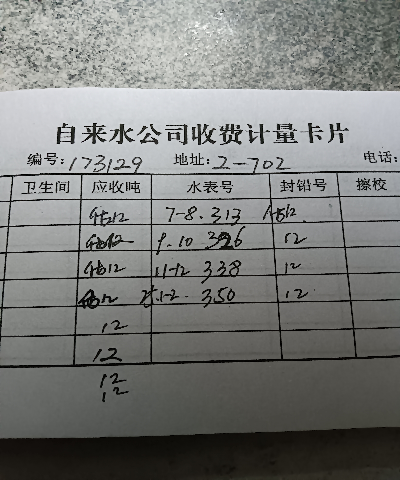 自来水公司收费计量卡片
编号: 173129 地址: 2-702 电话:
卫生间 应收吨 水表号 封铅号 擦校
12 7-8. 313 12
12 9.10 326 12
12 11-12 338 12
12 1-2. 350 12
12
12
12
12